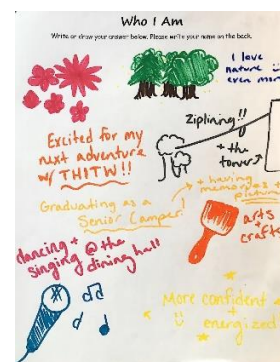 Who I Am
Write or draw your answer below. Please write your name on the back.
I love
nature
even more
Ziplining!!
+ the
tower
Excited for my
next adventure
w/ THITW!!
+ having
memories
Graduating as a
Senior Camper!
arts
+
crafts
dancing +
singing @ the
dining hall
More confident
+
energized